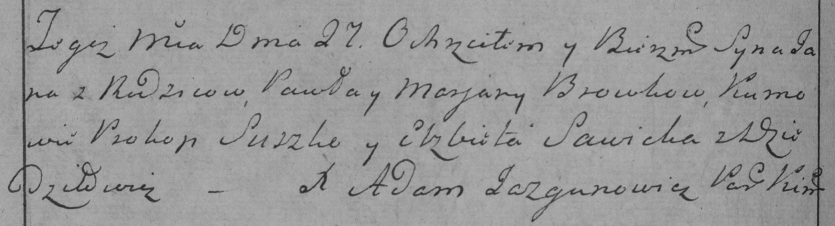 Tegoż Mca Dnia 27. Ochrzciłem y Bierzm Syna Ja
na z Rodzicow, Pawła y Maryany Browkow, Kumo
wie Prokop Suszko y Elzbieta Sawicka z Dzie
Dziłowicz — X Adam Jazgunowicz